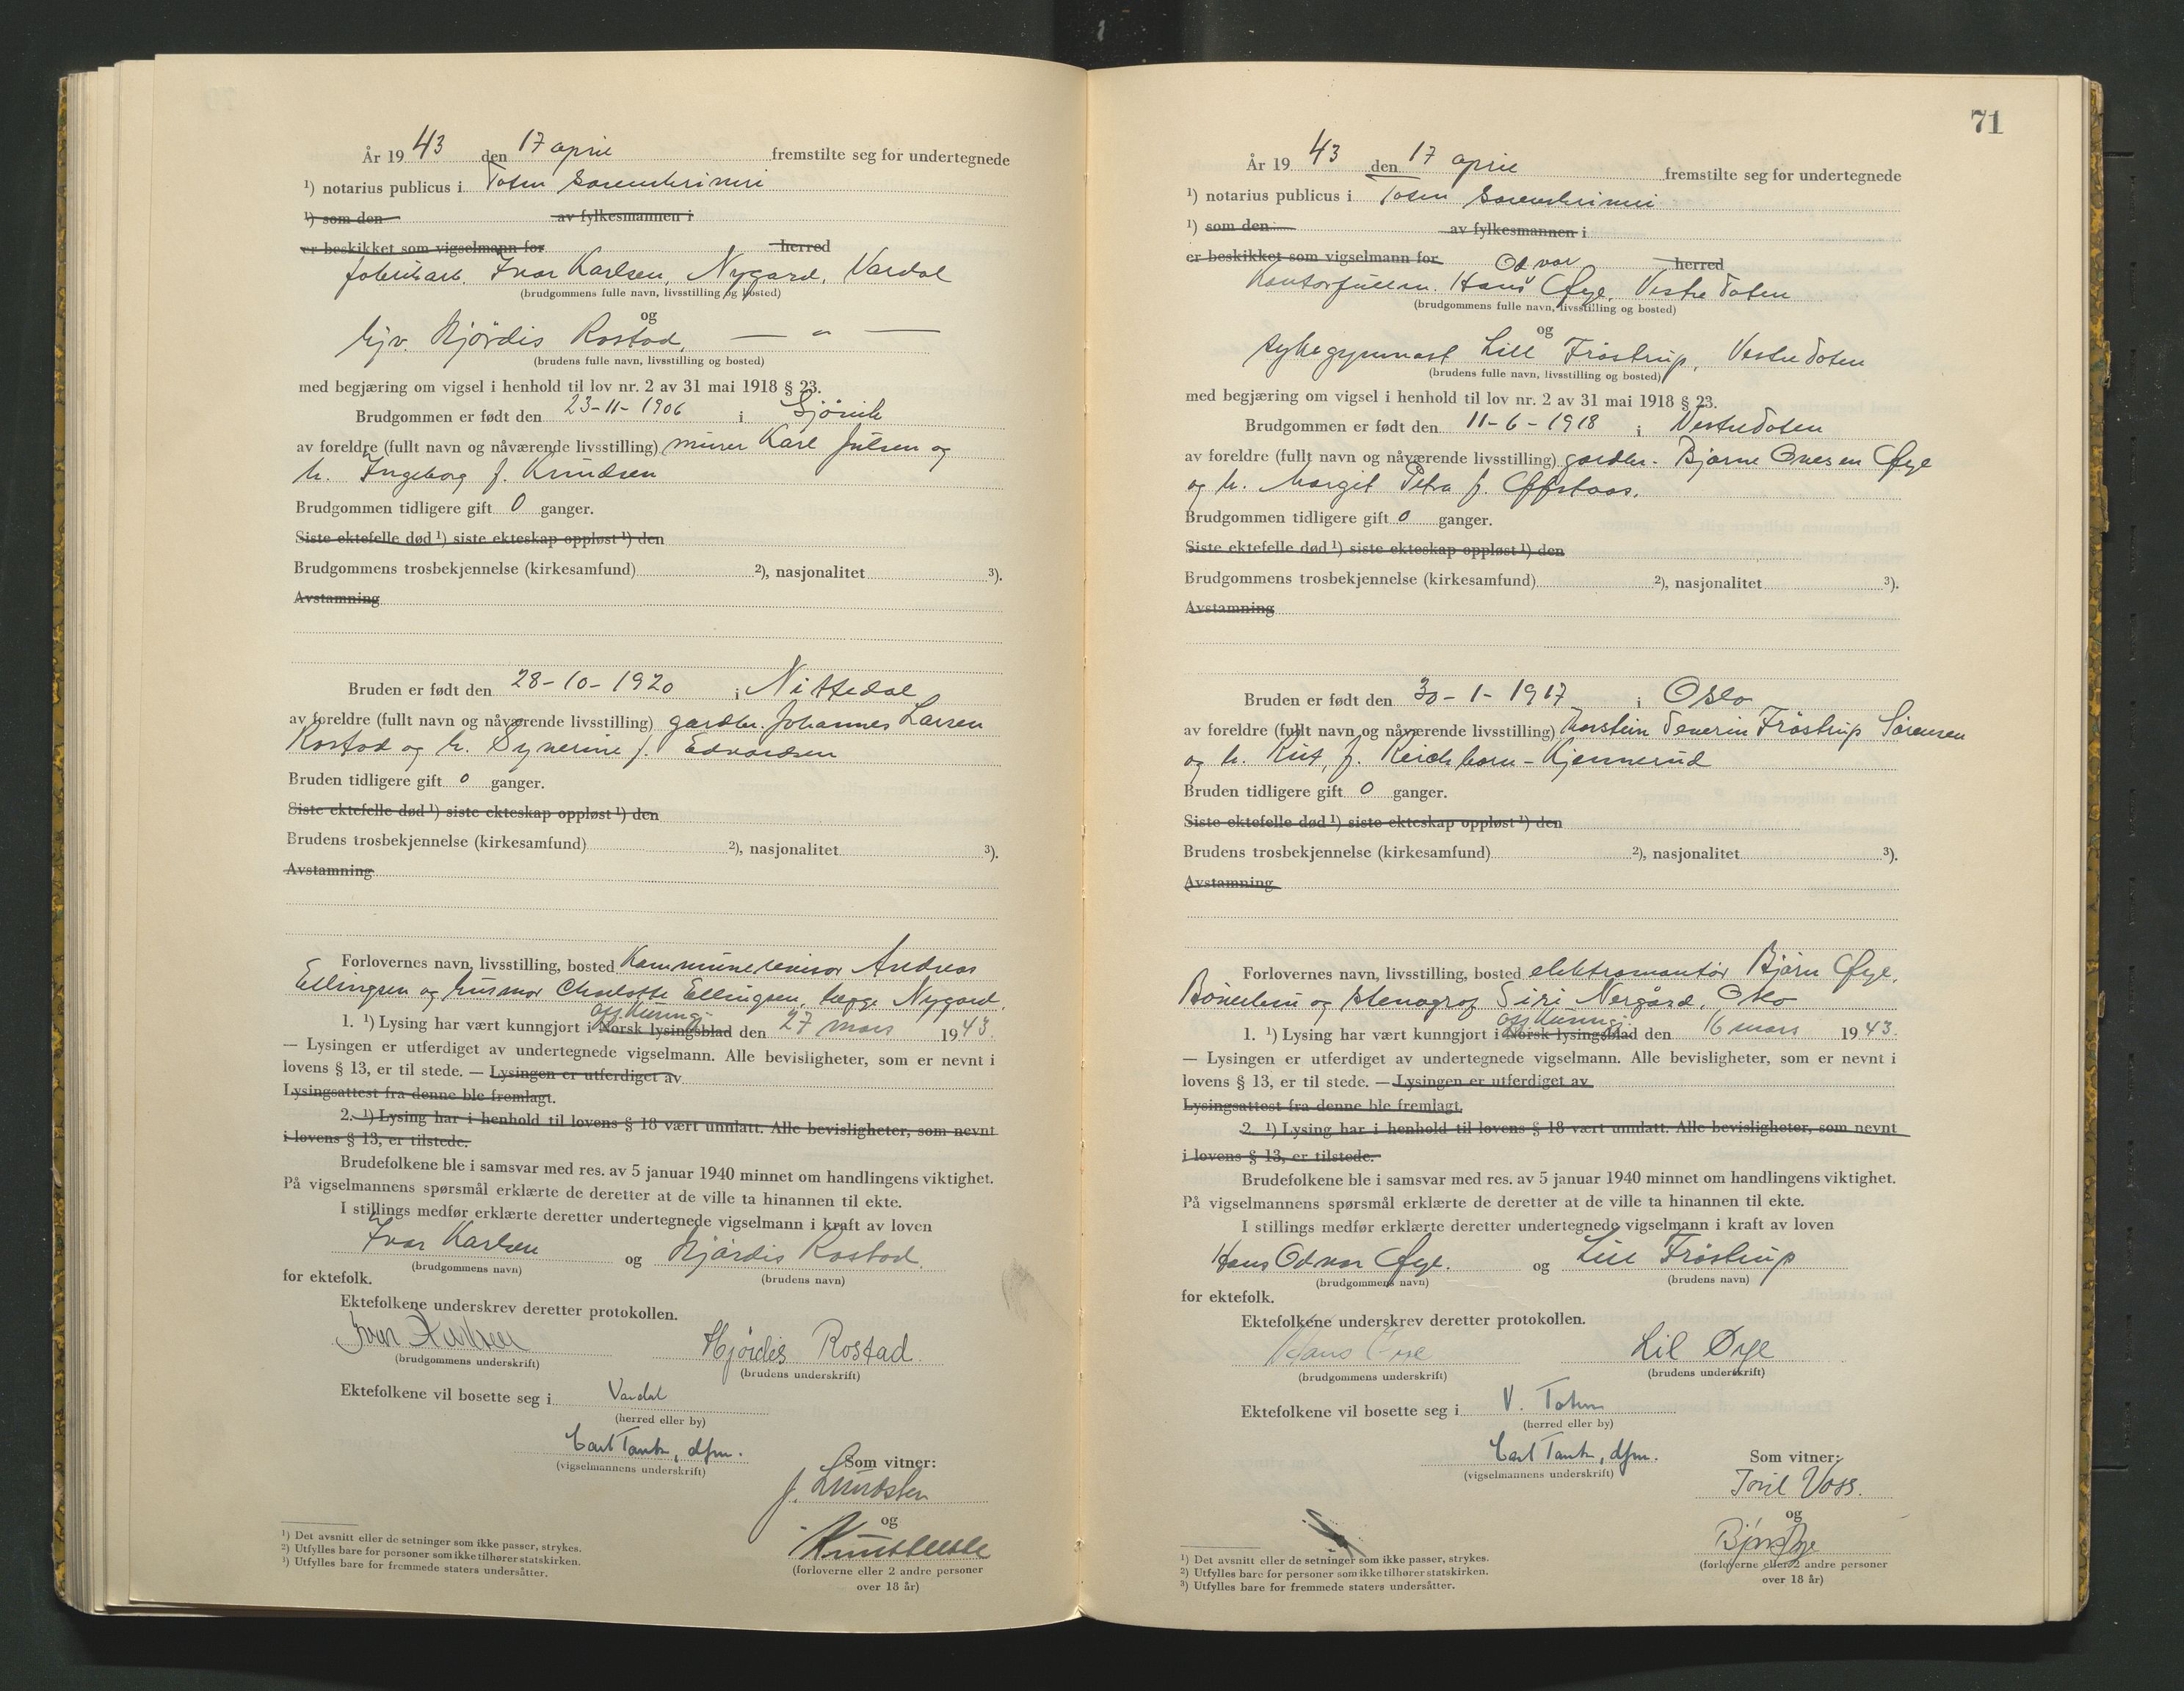 År 1943 den 17 april fremstilte seg for undertegnede
¹) notarius publicus i Toten sorenskriveri
¹) som den av fylkesmannen i
er beskikket som vigselmann for herred
fabrikarb. Ivar Karlsen, Nygard, Vardal
(brudgommens fulle navn, livsstilling og bosted)
og
hjv. Hjørdis Rostad, — " —
(brudens fulle navn, livsstilling og bosted)
med begjæring om vigsel i henhold til lov nr. 2 av 31 mai 1918 § 23.
Brudgommen er født den 23-11-1906 i Gjøvik
av foreldre (fullt navn og nåværende livsstilling) murer Karl Julsen og
h. Ingeborg f. Knudsen
Brudgommen tidligere gift 0 ganger.
Siste ektefelle død ¹) siste ekteskap oppløst ¹) den
Brudgommens trosbekjennelse (kirkesamfund) ²), nasjonalitet ³).
Avstamning
Bruden er født den 28-10-1920 i Nittedal
av foreldre (fullt navn og nåværende livsstilling) gardbr. Johannes Larsen
Rostad og h. Synerine f. Edvardsen
Bruden tidligere gift 0 ganger.
Siste ektefelle død ¹) siste ekteskap oppløst ¹) den
Brudens trosbekjennelse (kirkesamfund) ²), nasjonalitet ³).
Avstamning
Forlovernes navn, livsstilling, bosted Kommunerevisor Andreas
Ellingsen og husmor Charlotte Ellingsen, begge Nygard.
off. kunngj.
1. ¹) Lysing har vært kunngjort i Norsk lysingsblad den 27 mars 1943.
— Lysingen er utferdiget av undertegnede vigselmann. Alle bevisligheter, som er nevnt i
lovens § 13, er til stede. — Lysingen er utferdiget av
Lysingsattest fra denne ble fremlagt.
2. ¹) Lysing har i henhold til lovens § 18 vært unnlatt. Alle bevisligheter, som nevnt
i lovens § 13, er tilstede.
Brudefolkene ble i samsvar med res. av 5 januar 1940 minnet om handlingens viktighet.
På vigselmannens spørsmål erklærte de deretter at de ville ta hinannen til ekte.
I stillings medfør erklærte deretter undertegnede vigselmann i kraft av loven
Ivar Karlsen og Hjørdis Rostad.
(brudgommens navn) (brudens navn)
for ektefolk.
Ektefolkene underskrev deretter protokollen.
Ivar Karlsen Hjørdis Rostad.
(brudgommens underskrift) (brudens underskrift)
Ektefolkene vil bosette seg i Vardal
(herred eller by)
Carl Tank, dfm.
(vigselmannens underskrift)
Som vitner:
J. Lundsten
og
(forloverne eller 2 andre personer
over 18 år)
¹) Det avsnitt eller de setninger som ikke passer, strykes.
²) Utfylles bare for personer som ikke tilhører statskirken.
³) Utfylles bare for fremmede staters undersåtter.
71
År 1943 den 17 april fremstilte seg for undertegnede
¹) notarius publicus i Toten sorenskriveri
¹) som den av fylkesmannen i
er beskikket som vigselmann for herred
Odvar
Kontorfullm. Hans Øye, Vestre Toten
(brudgommens fulle navn, livsstilling og bosted)
og
sykegymnast Lill Frøstrup, Vestre Toten
(brudens fulle navn, livsstilling og bosted)
med begjæring om vigsel i henhold til lov nr. 2 av 31 mai 1918 § 23.
Brudgommen er født den 11-6-1918 i Vestre Toten
av foreldre (fullt navn og nåværende livsstilling) gardbr. Bjarne Onesen Øye
og h. Margit Petra f. Offstaas.
Brudgommen tidligere gift 0 ganger.
Siste ektefelle død ¹) siste ekteskap oppløst ¹) den
Brudgommens trosbekjennelse (kirkesamfund) ²), nasjonalitet ³).
Avstamning
Bruden er født den 30-1-1917 i Oslo
av foreldre (fullt navn og nåværende livsstilling) Thorstein Severin Frøstrup Sørensen
og h. Rut, f. Reichborn-Kjennerud
Bruden tidligere gift 0 ganger.
Siste ektefelle død ¹) siste ekteskap oppløst ¹) den
Brudens trosbekjennelse (kirkesamfund) ²), nasjonalitet ³).
Avstamning
Forlovernes navn, livsstilling, bosted elektromontør Bjørn Øye,
Bøverbru og stenograf Siri Nergård, Oslo
off. kunngj.
1. ¹) Lysing har vært kunngjort i Norsk lysingsblad den 16 mars 1943.
— Lysingen er utferdiget av undertegnede vigselmann. Alle bevisligheter, som er nevnt i
lovens § 13, er til stede. — Lysingen er utferdiget av
Lysingsattest fra denne ble fremlagt.
2. ¹) Lysing har i henhold til lovens § 18 vært unnlatt. Alle bevisligheter, som nevnt
i lovens § 13, er tilstede.
Brudefolkene ble i samsvar med res. av 5 januar 1940 minnet om handlingens viktighet.
På vigselmannens spørsmål erklærte de deretter at de ville ta hinannen til ekte.
I stillings medfør erklærte deretter undertegnede vigselmann i kraft av loven
Hans Odvar Øye. og Lill Frøstrup
(brudgommens navn) (brudens navn)
for ektefolk.
Ektefolkene underskrev deretter protokollen.
Hans Øye Lil Øye
(brudgommens underskrift) (brudens underskrift)
Ektefolkene vil bosette seg i V. Toten
(herred eller by)
Carl Tank, dfm.
(vigselmannens underskrift)
Som vitner:
Toril Voss.
og
Bjørn Øye
(forloverne eller 2 andre personer
over 18 år)
¹) Det avsnitt eller de setninger som ikke passer, strykes.
²) Utfylles bare for personer som ikke tilhører statskirken.
³) Utfylles bare for fremmede staters undersåtter.